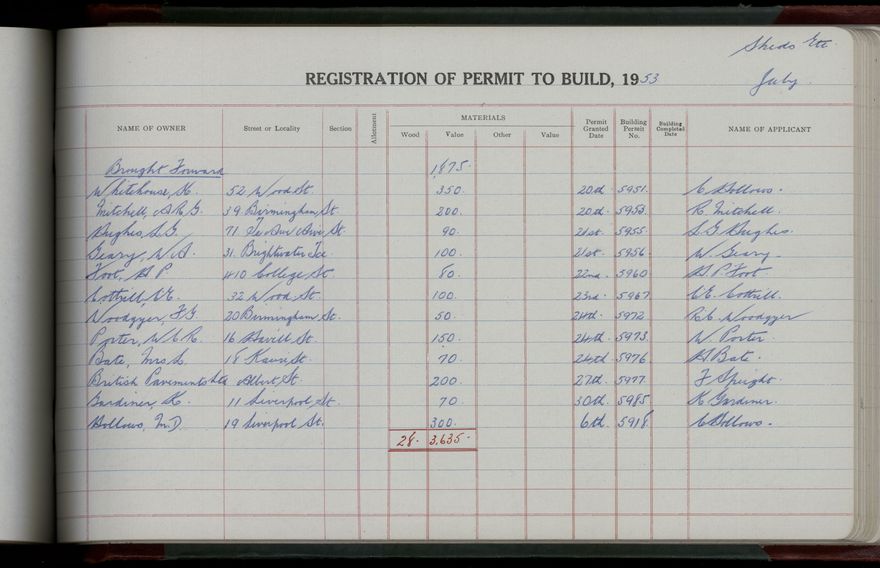 Sheds Etc.
REGISTRATION OF PERMIT TO BUILD, 1953 July
NAME OF OWNER Street or Locality Section Allotment MATERIALS Wood Value Other Value Permit Granted Date Building Permit No. Building Completed Date NAME OF APPLICANT
Brought Forward 1,875.
Whitehouse, K. 52 Wood St. 350. 20th 5951. C Bollows.
Mitchell, A.R.G. 39 Birmingham St. 200. 20th 5953. R. Mitchell.
Hughes, S.G. 71 Ave, St. 90. 21st 5955. S.G Hughes.
Geary, W.A. 31 Brightwater Tce 100. 21st 5956. W. Geary.
Foot, H P 410 College St 80. 22nd 5960 H P. Foot
Cottrill, C.E. 32 Wood St. 100. 23rd 5967 C.E. Cottrill.
Woodyer, F.G. 20 Birmingham St. 50. 24th 5972 R.C. Woodyer
Porter, W.C.R. 16 Havill St. 150. 24th 5973. W. Porter.
Bate, Mrs L. 18 Kaura St. 70. 24th 5976 H Bate.
British Pavements Ltd Albert St. 200. 27th. 5977. F Speight.
Gardiner, K. 11 Liverpool St. 70. 30th 5985 K Gardiner.
Bollows, M.D. 19 Liverpool St. 300. 6th. 5918 C Bollows.
28. 3,635.